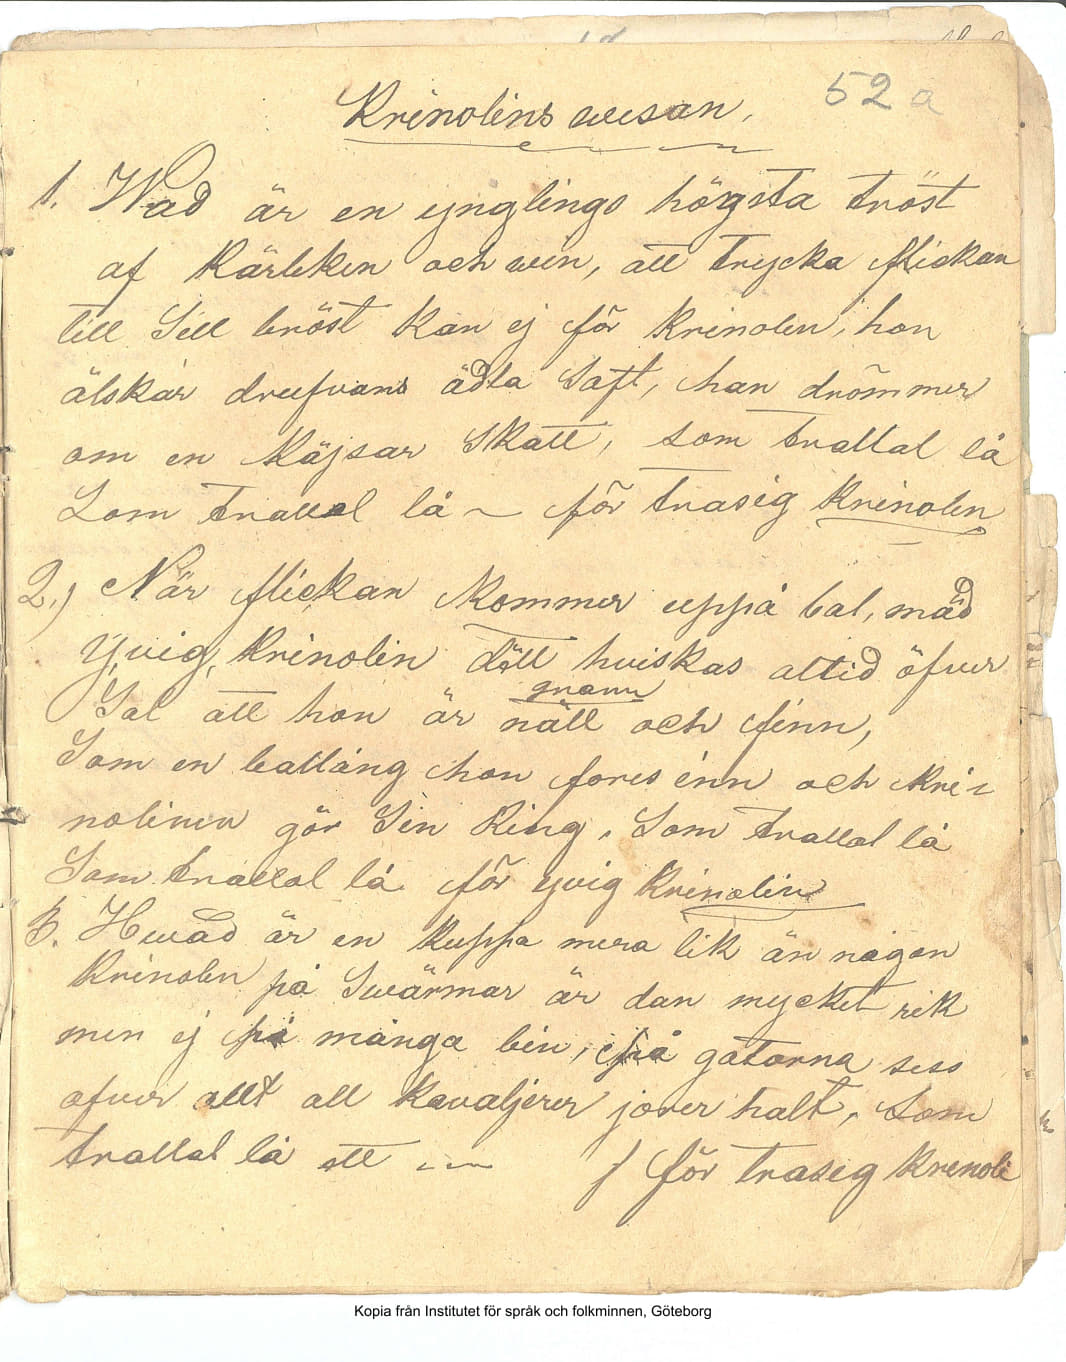 52 a
Krinolins wisan.
1. Wad är en ynglings högsta tröst
af Kärleken och win, att trycka flickan
till Sitt bröst kan ej för krinolin, han
älskar drufvans ädla Saft, han drömmer
om en Käjsar Skatt, som trallal lå
Som trallal lå ~ för trasig Krinolin
2.) När flickan kommer uppå bal, mäd
Yvig, Krinolin dätt hviskas altid öfver
Sal att hon är nätt och finn,
grann
Som en ballång hon fores inn och kri-
nolinen gör Sin Ring, Som trallal lå
Som trallal lå för yvig Krinolin
3. Hwad är en kuppa mera lik än någon
Krinolin på Swärmar är dan mycket rik
men ej på många bin, på gatorna sess
ofver allt att Kavaljerer jorer halt, Som
trallal lå ett ~ / för trasig Krinoli
Kopia från Institutet för språk och folkminnen, Göteborg